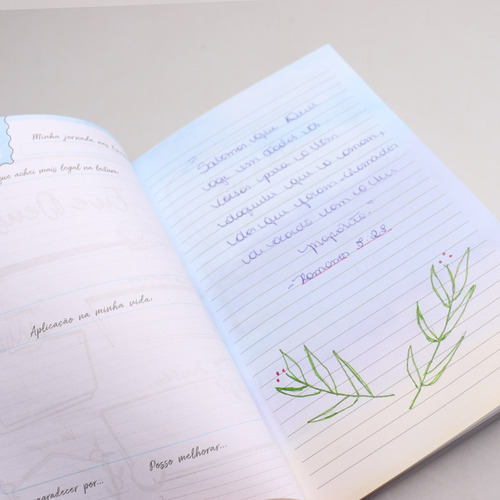 Minha jornada nos
que achei mais legal na leitura
Aplicação na minha vida:
Posso melhorar...
agradecer por...
"Sabemos que Deus
age em todas as
coisas para o bem
daqueles que o amam,
dos que foram chamados
de acordo com o seu
propósito."
- Romanos 8:28